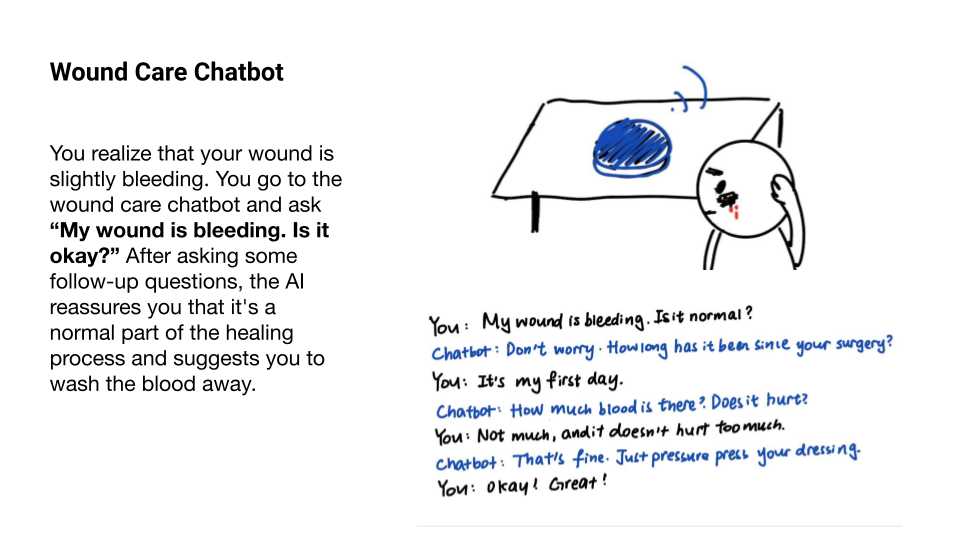 Wound Care Chatbot
You realize that your wound is
slightly bleeding. You go to the
wound care chatbot and ask
“My wound is bleeding. Is it
okay?” After asking some
follow-up questions, the AI
reassures you that it's a
normal part of the healing
process and suggests you to
wash the blood away.
You: My wound is bleeding. Is it normal?
Chatbot: Don't worry. How long has it been since your surgery?
You: It's my first day.
Chatbot: How much blood is there? Does it hurt?
You: Not much, and it doesn't hurt too much.
Chatbot: That's fine. Just pressure press your dressing.
You: Okay! Great!